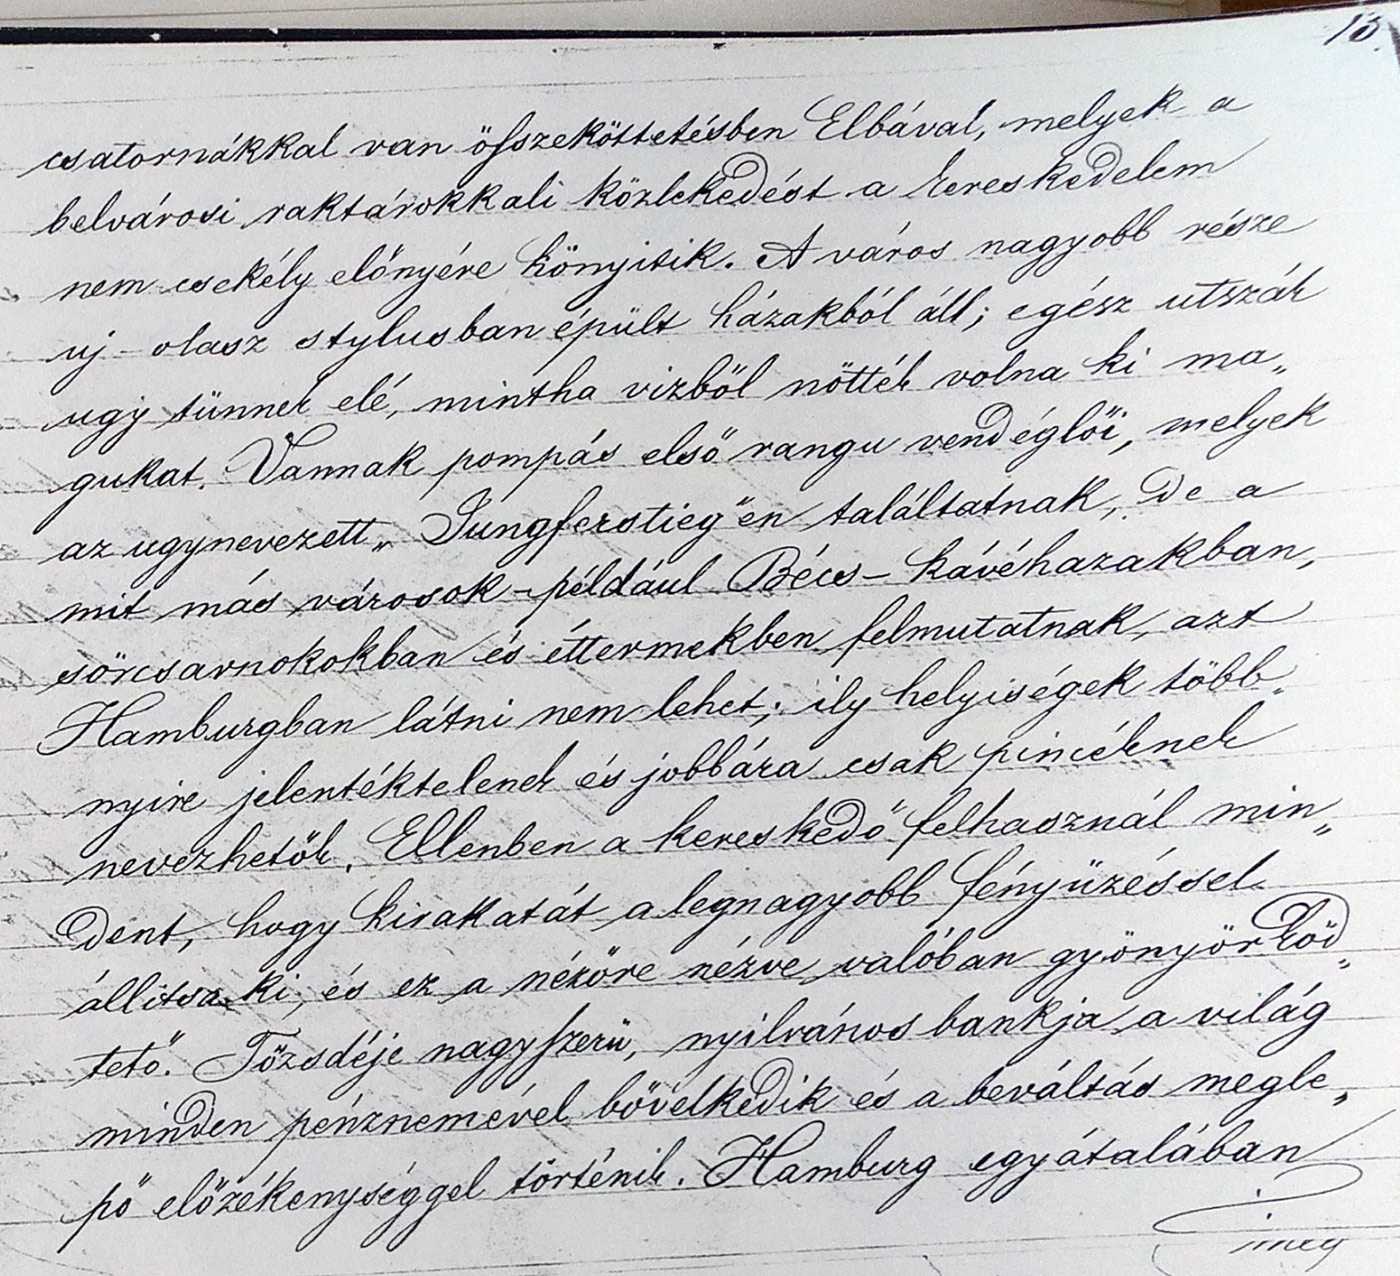 13.
csatornákkal van öſszeköttetésben Elbával, melyek a
belvárosi raktárokkali közlekedést a kereskedelem
nem csekély előnyére könyitik. A város nagyobb része
uj-olasz stylusban épült házakból áll; egész utszák
ugy tünnek elé, mintha vizből nőttek volna ki ma„
gukat. Vannak pompás első rangu vendéglői, melyek
az ugynevezett „Jungferstieg"en találtatnak, De a
mit más városok – például Bécs – kávéhazakban,
sörcsarnokokban és éttermekben felmutatnak, azt
Hamburgban látni nem lehet; ily helyiségek több„
nyire jelentéktelenek és jobbára csak pincéknek
nevezhetők. Ellenben a kereskedő felhasznál min„
dent, hogy kirakatát a legnagyobb fényüzéssel
állitsa ki, és ez a nézőre nézve valóban gyönyörköd„
tető. Tőzsdéje nagyſzerü, nyilvános bankja a világ
minden pénznemével bővelkedik és a beváltás megle„
pő előzékenységgel történik. Hamburg egyátalában